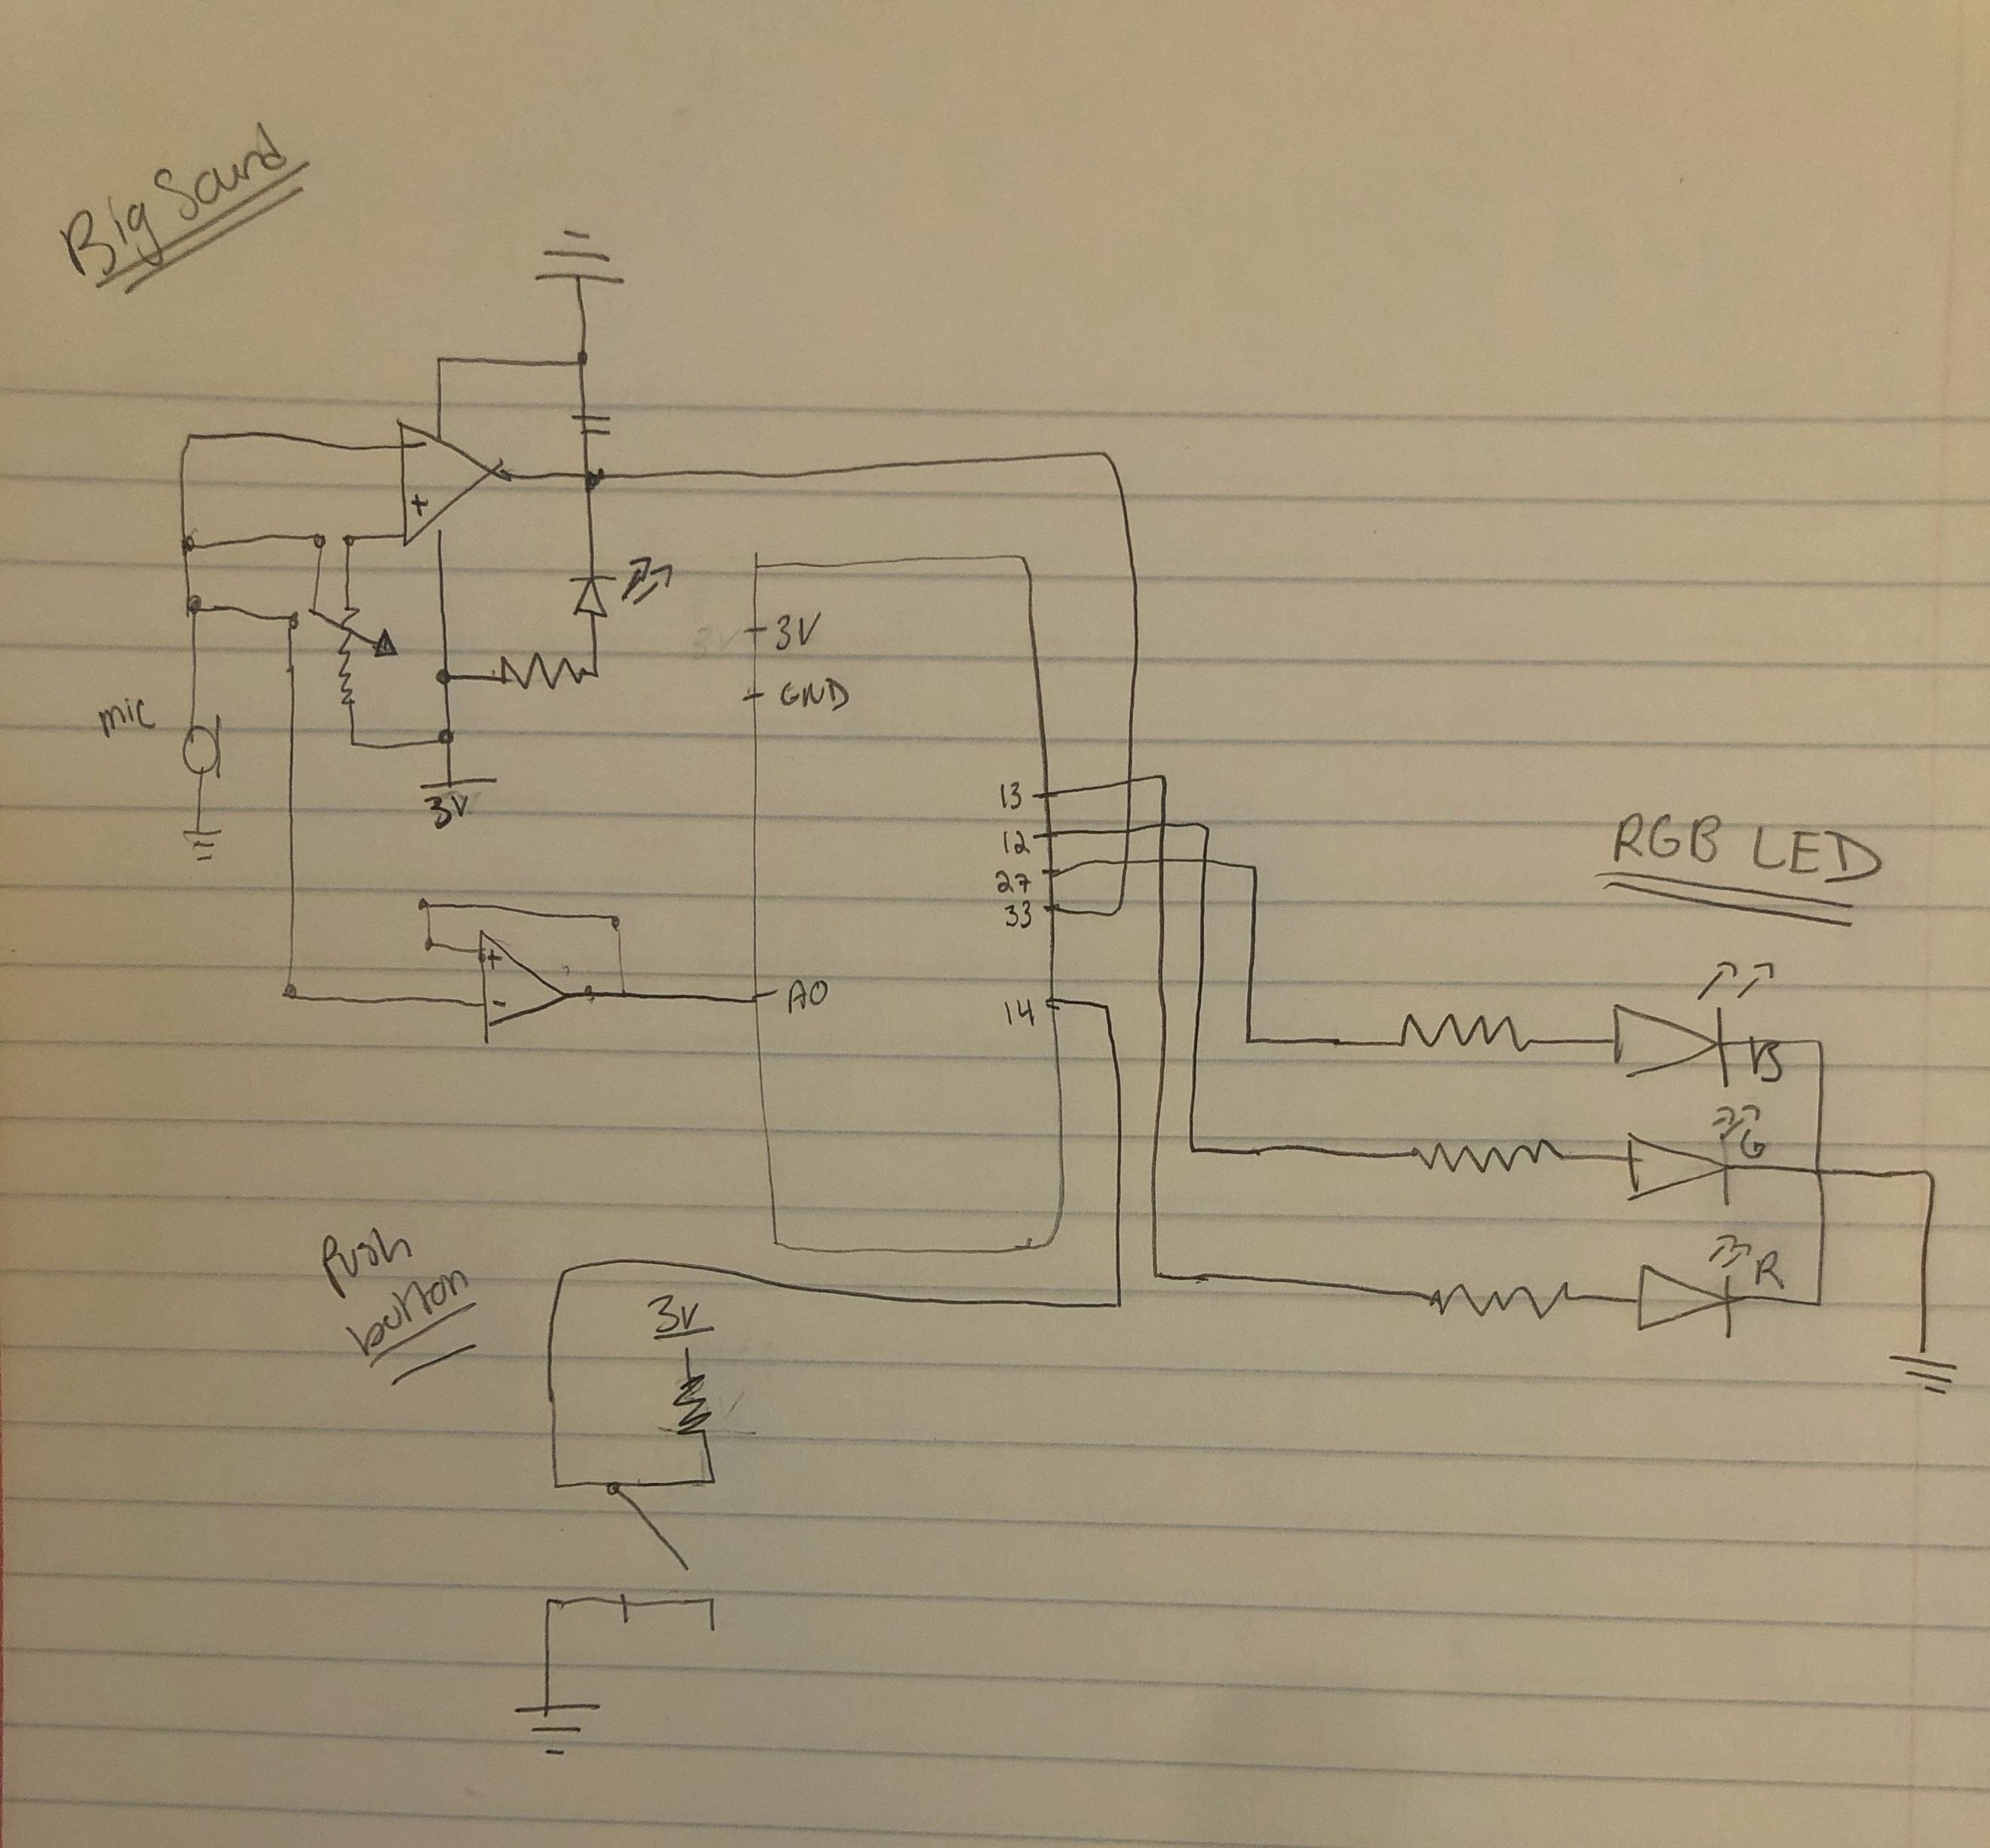 Big Sound
-
+
mic
3V
3V
GND
13
12
27
33
14
A0
+
-
RGB LED
B
G
R
Push
button
3V